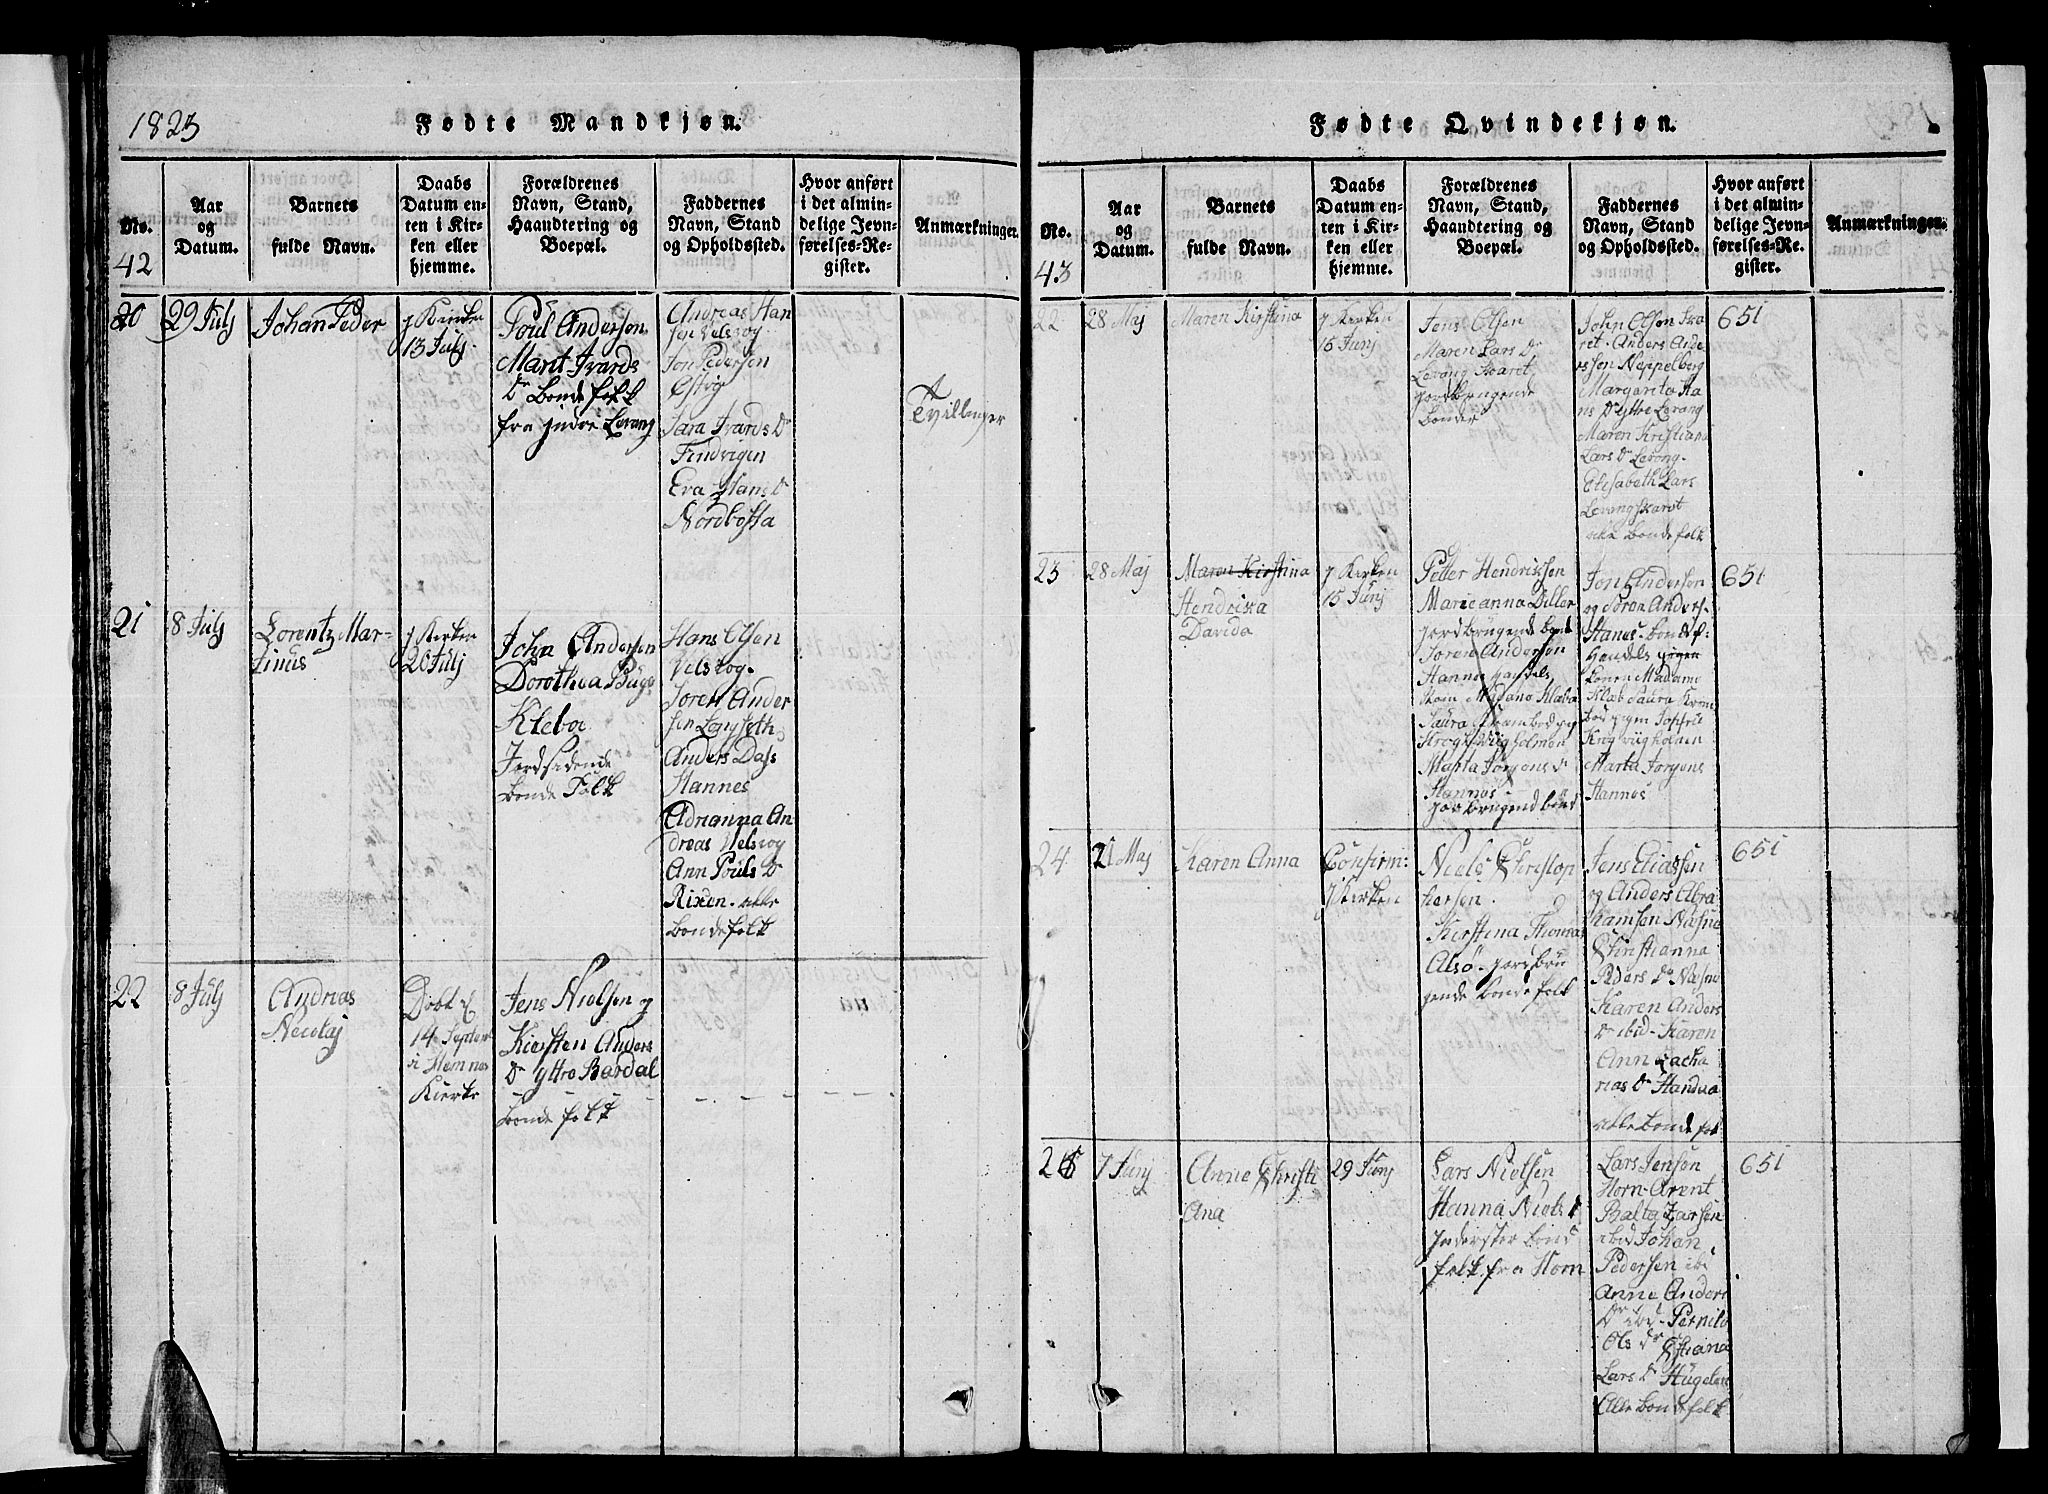 1823
Fødte Mandkjøn.
No.
42
Aar
og
Datum.
Barnets
fulde Navn.
Daabs
Datum en-
ten i Kir-
ken eller
hjemme.
Forældrenes
Navn, Stand,
Haandtering og
Boepæl.
Faddernes
Navn, Stand
og Opholdssted.
Hvor anført
i det almin-
delige Jevn-
førelses-Re-
gister.
Anmærkninger.
20
29 Julj
Johan Peder
J Kirken
13 Julj.
Poul Andersen
Marit Ivards
Dr Bonde folk
fra jndre Levang
Andreas Han
sen Velsvog.
Jon Pedersen
Østvig
Sara Ivards Dr
Findvigen
Eva Hans Dr
Nordbosta
Tvillinger
21
8 Julj
Lorentz Mar-
tinus
J Kirken
20 Julj
John Andersen
Dorothea
Kleboe
Jordsidende
bonde Folk
Hans Olsen
Velsvog.
Soren Ander
sen Langseth
Anders Dass
Hannes
Adrianna An
dreas Velsvog
Ann Pouls Dr
Rixen. alle
bondefolk
22
8 Julj
Andreas
Necolaj
Døbt d
14 Septemb
i Hemnes
Kierke
Jens Nielsen og
Kiersten Anders
Dr yttre Bardal
bonde folk
Fødte Qvindekjøn.
No.
43
Aar
og
Datum.
Barnets
fulde Navn.
Daabs
Datum en-
ten i Kir-
ken eller
hjemme.
Forældrenes
Navn, Stand,
Haandtering og
Boepæl.
Faddernes
Navn, Stand
og Opholdssted.
Hvor anført
i det almin-
delige Jevn-
førelses-Re-
gister.
Anmærkninger.
22
28 Maj
Maren Kirstina
J Kirken
15 Junj
Jens Olsen
Maren Lars Dr
Levang Skaret
jordbrugende
bonder
John Olsen Ska
ret. Anders Ande
rssen Neppelberg
Margareta Ha
ns Dr Yttre Levang
Maren Kristiana
Lars Dr Levang.
Elisabeth Lars
Levangskaret
alle bonde folk
651
23
28 Maj
Maren Kirstina
Hendrika
Davida
J Kirken
15 Junj
Petter Hendriksen
Marieanna Diller
jordbrugende bond
Soren Andersen
Hannes handels
Krogh Wiigholmen
Marta Jorgens d
Hannes
jordbrugend bond
Jon Andersen
og Soren Anders.
Hanes. bondef:
Marta Jorgens
Hannes
651
24
21 Maj
Karen Anna
Confirm:
J Kirken
Niels Christop
hersen.
Kirstina Thomas
Alsø. jordbru
gende bonde folk
Jens Eliassen
og Anders Abra
hamsen Næsna
Christianna
Peders dr Næsna
Karen Anders
Dr ibid. Karen
Ann Zacha
rias Dr Handna
alle bonde folk
651
25
7 Junj
Anne Christi
Ana
29 Junj
Lars Nielsen
Hanna Niels d
Inderster bond
folk fra Horn
Lars Jensen
Horn. Arent
Baltazarsen
ibid Johan
Pedersen ibi
Anne Anders
Dr ibd. Pernile
Ols dr
Lars Dr Hugelen
Alle bondefolk
651